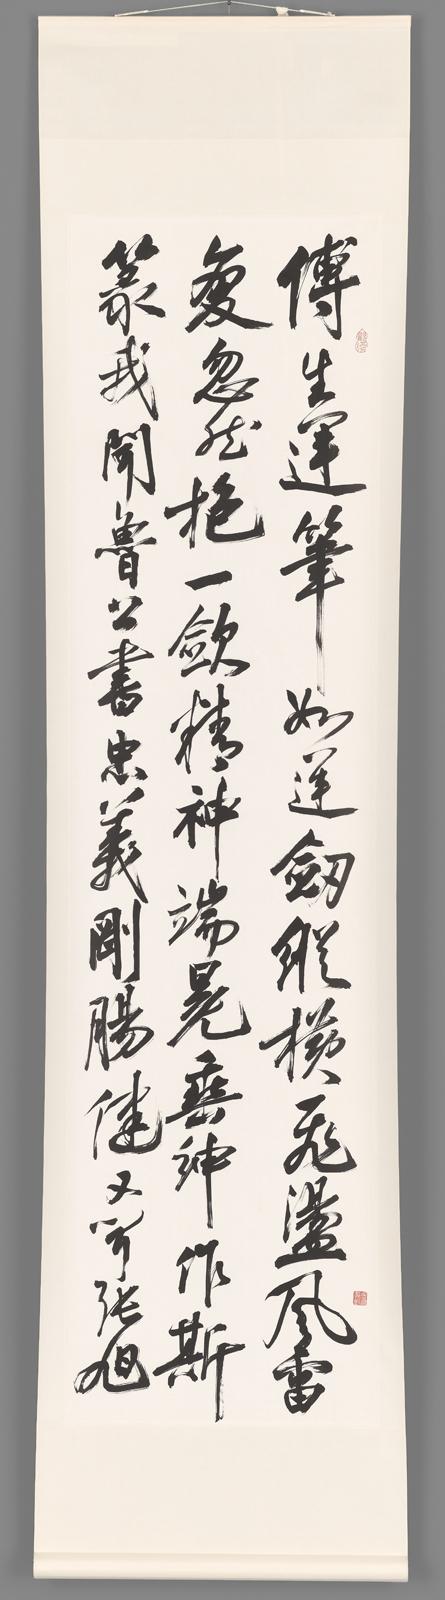 傅生運筆如運劍縱橫飛盪風雷
變忽然抱一斂精神端晃垂紳作斯
篆我聞魯公書忠義剛腸健又聞張旭